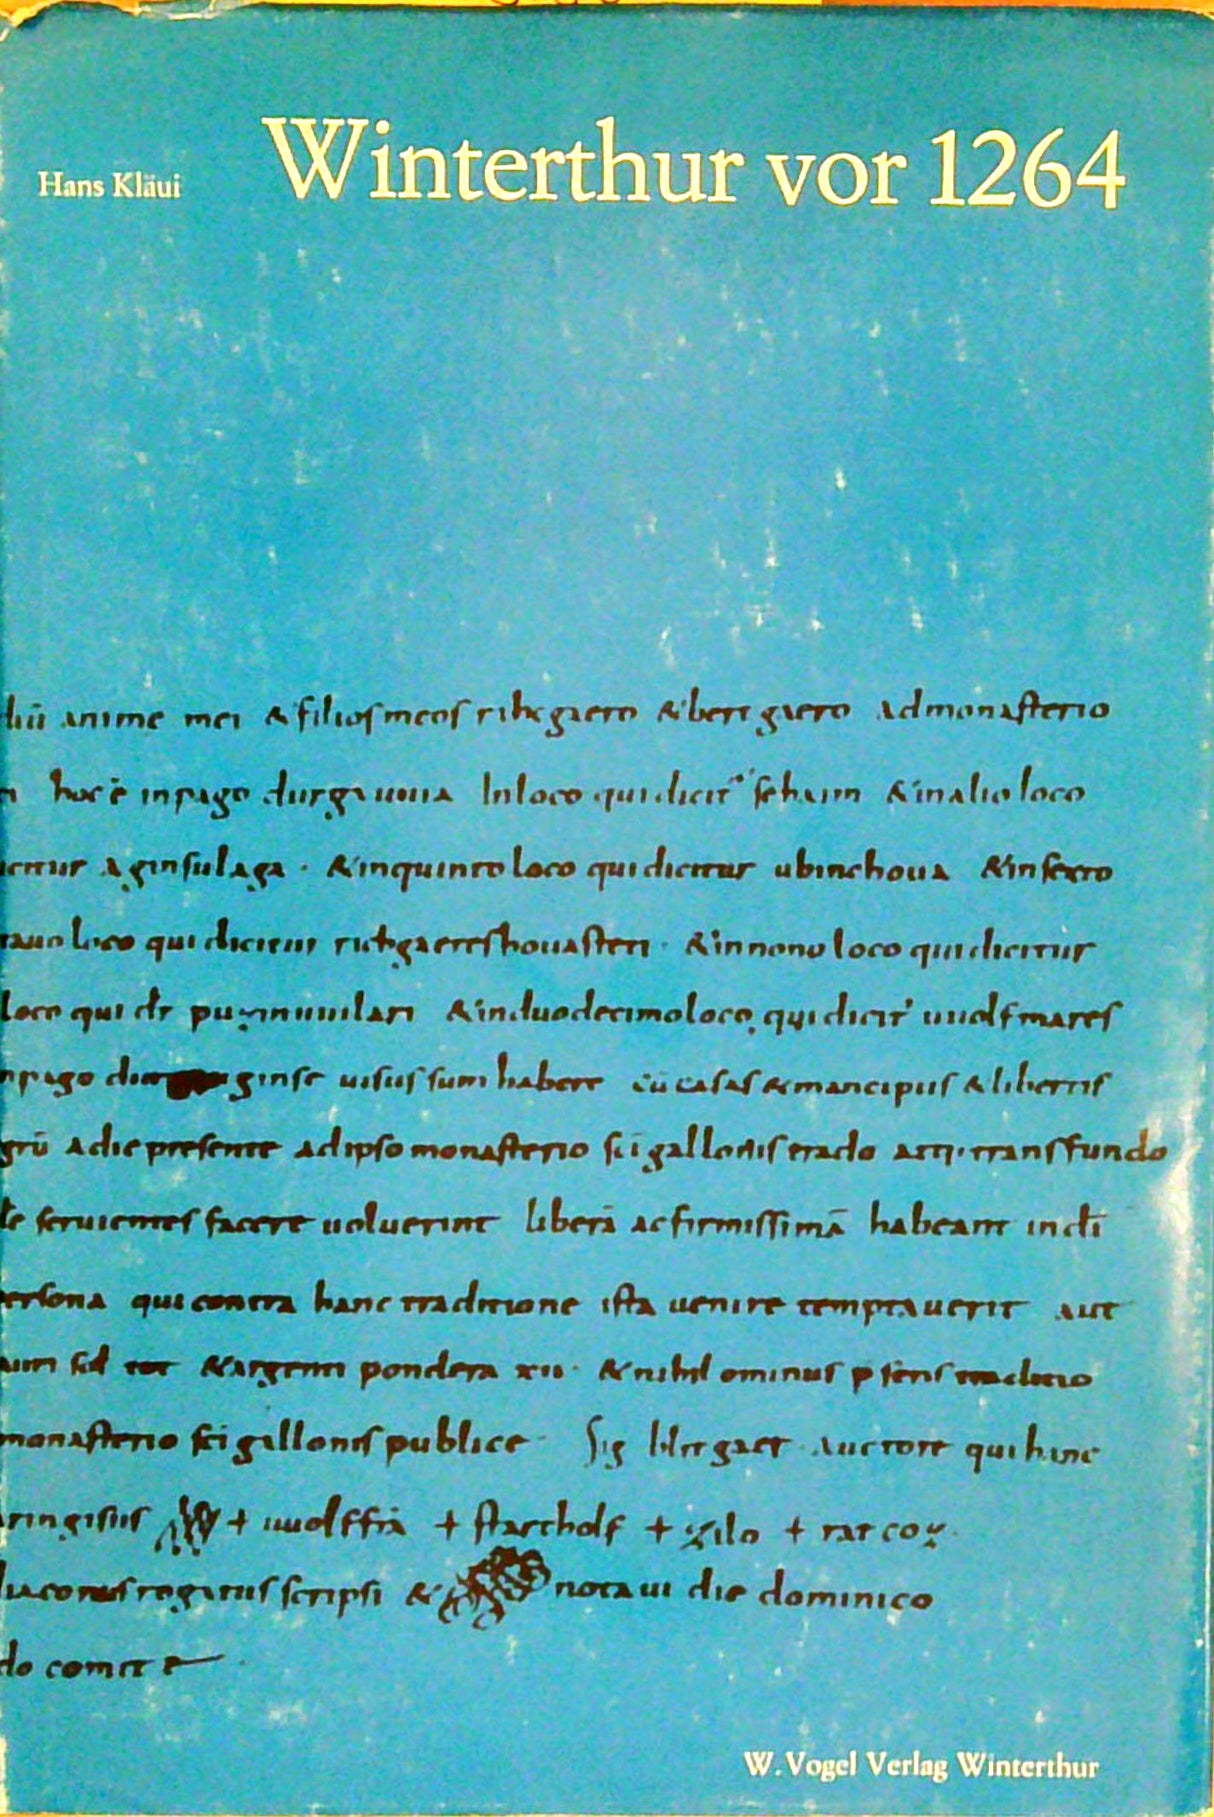 Hans Kläui
Winterthur vor 1264
anime mei & filios meos rihgaero & bertgaero ad monasterio
hoc ē in pago durgauuia In loco qui dicit sehaim & in alio loco
aginsulaga · & in quinto loco qui dicitur ubinchova & in sexto
loco qui dicitur richgaereshovasteri · & in nono loco qui dicitur
loco qui dr puzinuuilari & in duodecimo loco qui dicit uuolfmares
pago ginse uisus sum habere cū casas & mancipiis & libertis
adie presente ad ipso monasterio sci gallonis trado atq. transfundo
seruientes facere uoluerint liberā ac firmissimā habeant in dī
persona qui contra hanc traditione ista uenire temptauerit aut
sid tot & argenti pondera xii · & nihil ominus psens traditio
monasterio sci gallonis publice · Sig blitgaer auctore qui hanc
ringisus + uuolffrā + starcholf + zilo + ratcoz.
diaconus rogitus scripsi & notaui die dominico
do comite
W. Vogel Verlag Winterthur